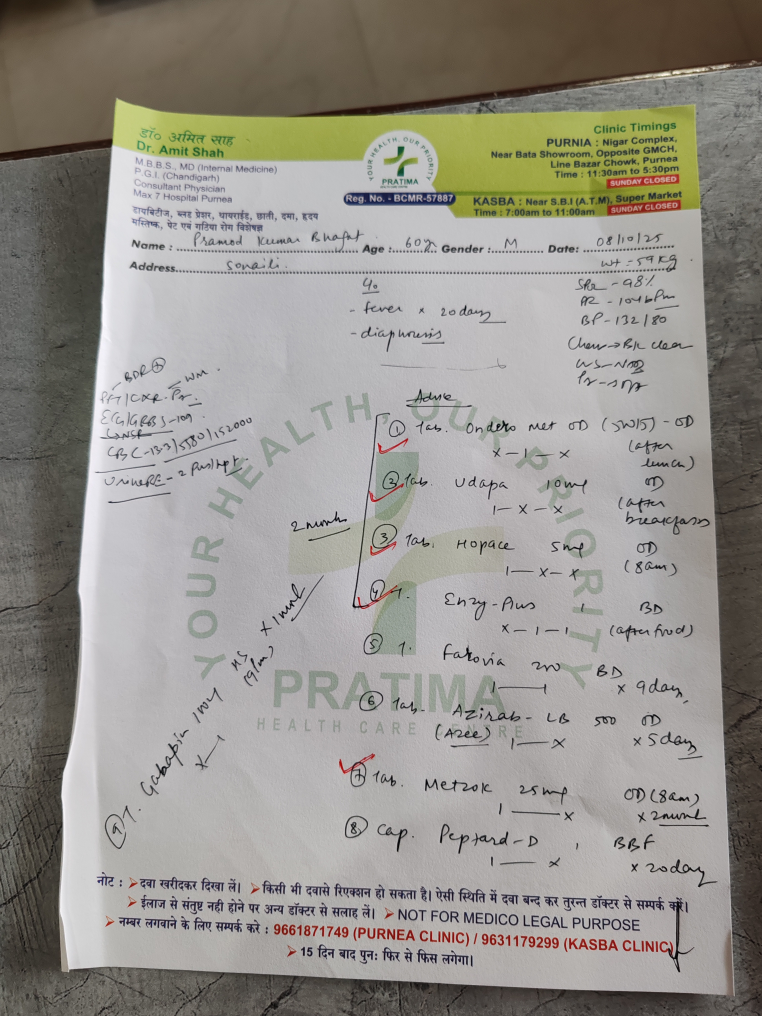 डॉ० अमित साह
Dr. Amit Shah
M.B.B.S., MD (Internal Medicine)
P.G.I. (Chandigarh)
Consultant Physician
Max 7 Hospital Purnea
डायबिटीज, ब्लड प्रेशर, थायराईड, छाती, दमा, हृदय
मस्तिष्क, पेट एवं गठिया रोग विशेषज्ञ
YOUR HEALTH, OUR PRIORITY
PRATIMA
Reg. No. - BCMR-57887
Clinic Timings
PURNIA : Nigar Complex,
Near Bata Showroom, Opposite GMCH,
Line Bazar Chowk, Purnea
Time : 11:30am to 5:30pm
SUNDAY CLOSED
KASBA : Near S.B.I (A.T.M), Super Market
Time : 7:00am to 11:00am SUNDAY CLOSED
Name : Pramod Kumar Bhagat Age : 60yr Gender : M Date: 08/10/25
Address Sonaili. wt - 59 kg
- fever x 20 days
BP - 132/80
Advise
CBC - 13.3/5580/152000
① Tab. Ondero met OD OD
x - 1 - x (after lunch)
② Tab. Udapa 10mg OD
1 - x - x (after breakfast)
③ Tab. Hopace 5mg OD
1 - x - x (8am)
④ T. Enzy-Plus 1 BD
x - 1 - 1 (after food)
⑤ T. Farovia 200 BD
1 — 1 x 9 days
⑥ Tab. Azirab-LB 500 OD
(Azee) 1 — x x 5 days
⑦ Tab. Metzok 25mg OD (8am)
1 — x x 2 month
⑧ Cap. Peptard-D 1 BBF
1 — x x 20 days
2 months
⑨ T. Gabapin HS x 1 month
x — 1 (9pm)
YOUR HEALTH, OUR PRIORITY
PRATIMA
HEALTH CARE CENTRE
नोट : ➤ दवा खरीदकर दिखा लें। ➤ किसी भी दवासे रिएक्शन हो सकता है। ऐसी स्थिति में दवा बन्द कर तुरन्त डॉक्टर से सम्पर्क करें।
➤ ईलाज से संतुष्ट नही होने पर अन्य डॉक्टर से सलाह लें। ➤ NOT FOR MEDICO LEGAL PURPOSE
➤ नम्बर लगवाने के लिए सम्पर्क करे : 9661871749 (PURNEA CLINIC) / 9631179299 (KASBA CLINIC)
➤ 15 दिन बाद पुन: फिर से फिस लगेगा।